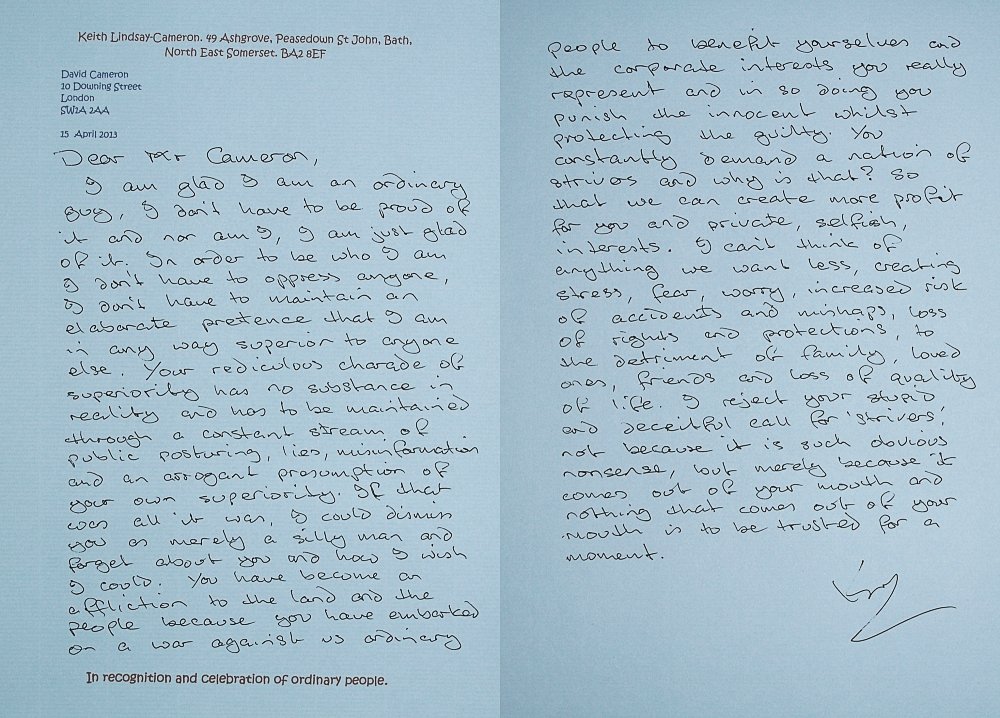 Keith Lindsay-Cameron. 49 Ashgrove, Peasedown St John, Bath,
North East Somerset. BA2 8EF
David Cameron
10 Downing Street
London
SW1A 2AA
15 April 2013
Dear Mr Cameron,
I am glad I am an ordinary
guy, I don't have to be proud of
it and nor am I, I am just glad
of it. In order to be who I am
I don't have to oppress anyone,
I don't have to maintain an
elaborate pretence that I am
in any way superior to anyone
else. Your rediculous charade of
superiority has no substance in
reality and has to be maintained
through a constant stream of
public posturing, lies, misinformation
and an arrogant presumption of
your own superiority. If that
was all it was, I could dismiss
you as merely a silly man and
forget about you and how I wish
I could. You have become an
affliction to the land and the
people because you have embarked
on a war against us ordinary
In recognition and celebration of ordinary people.
people to benefit yourselves and
the corporate interests you really
represent and in so doing you
punish the innocent whilst
protecting the guilty. You
constantly demand a nation of
strivers and why is that? So
that we can create more profit
for you and private, selfish,
interests. I can't think of
anything we want less, creating
stress, fear, worry, increased risk
of accidents and mishaps, loss
of rights and protections, to
the detriment of family, loved
ones, friends and loss of quality
of life. I reject your stupid
and deceitful call for 'strivers',
not because it is such obvious
nonsense, but merely because it
comes out of your mouth and
nothing that comes out of your
mouth is to be trusted for a
moment.